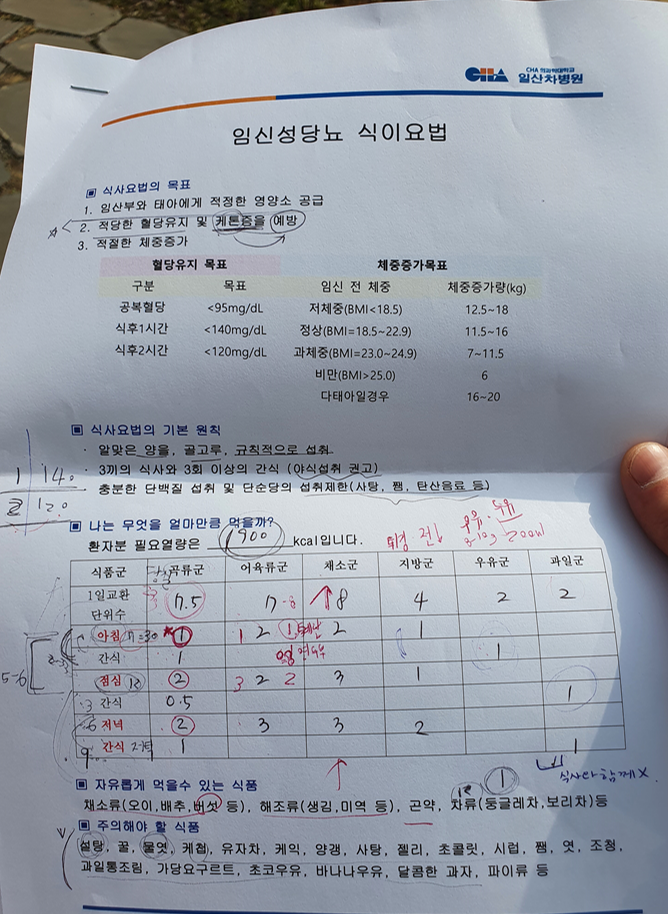 CHA 의과학대학교
CHA 일산차병원
임신성당뇨 식이요법
▣ 식사요법의 목표
1. 임산부와 태아에게 적정한 영양소 공급
2. 적당한 혈당유지 및 케톤증을 예방
3. 적절한 체중증가
혈당유지 목표 체중증가목표
구분 목표 임신 전 체중 체중증가량(kg)
공복혈당 <95mg/dL 저체중(BMI<18.5) 12.5~18
식후1시간 <140mg/dL 정상(BMI=18.5~22.9) 11.5~16
식후2시간 <120mg/dL 과체중(BMI=23.0~24.9) 7~11.5
비만(BMI>25.0) 6
다태아일경우 16~20
▣ 식사요법의 기본 원칙
· 알맞은 양을, 골고루, 규칙적으로 섭취
1 140
· 3끼의 식사와 3회 이상의 간식 (야식섭취 권고)
2 120
· 충분한 단백질 섭취 및 단순당의 섭취제한(사탕, 쨈, 탄산음료 등)
▣ 나는 무엇을 얼마만큼 먹을까?
환자분 필요열량은 1900 kcal입니다.
우유 두유
200ml
식품군 곡류군 어육류군 채소군 지방군 우유군 과일군
1일교환 단위수 7.5 7 8 4 2 2
아침 1 1 2 2 1
간식 1 1
점심 2 3 2 2 3 1
5-6
간식 0.5 1
저녁 2 3 3 2
간식 1 1
식사와 함께 X
▣ 자유롭게 먹을수 있는 식품
채소류(오이,배추,버섯 등), 해조류(생김,미역 등), 곤약, 차류(둥글레차,보리차)등
▣ 주의해야 할 식품
설탕, 꿀, 물엿, 케첩, 유자차, 케익, 양갱, 사탕, 젤리, 초콜릿, 시럽, 쨈, 엿, 조청,
과일통조림, 가당요구르트, 초코우유, 바나나우유, 달콤한 과자, 파이류 등